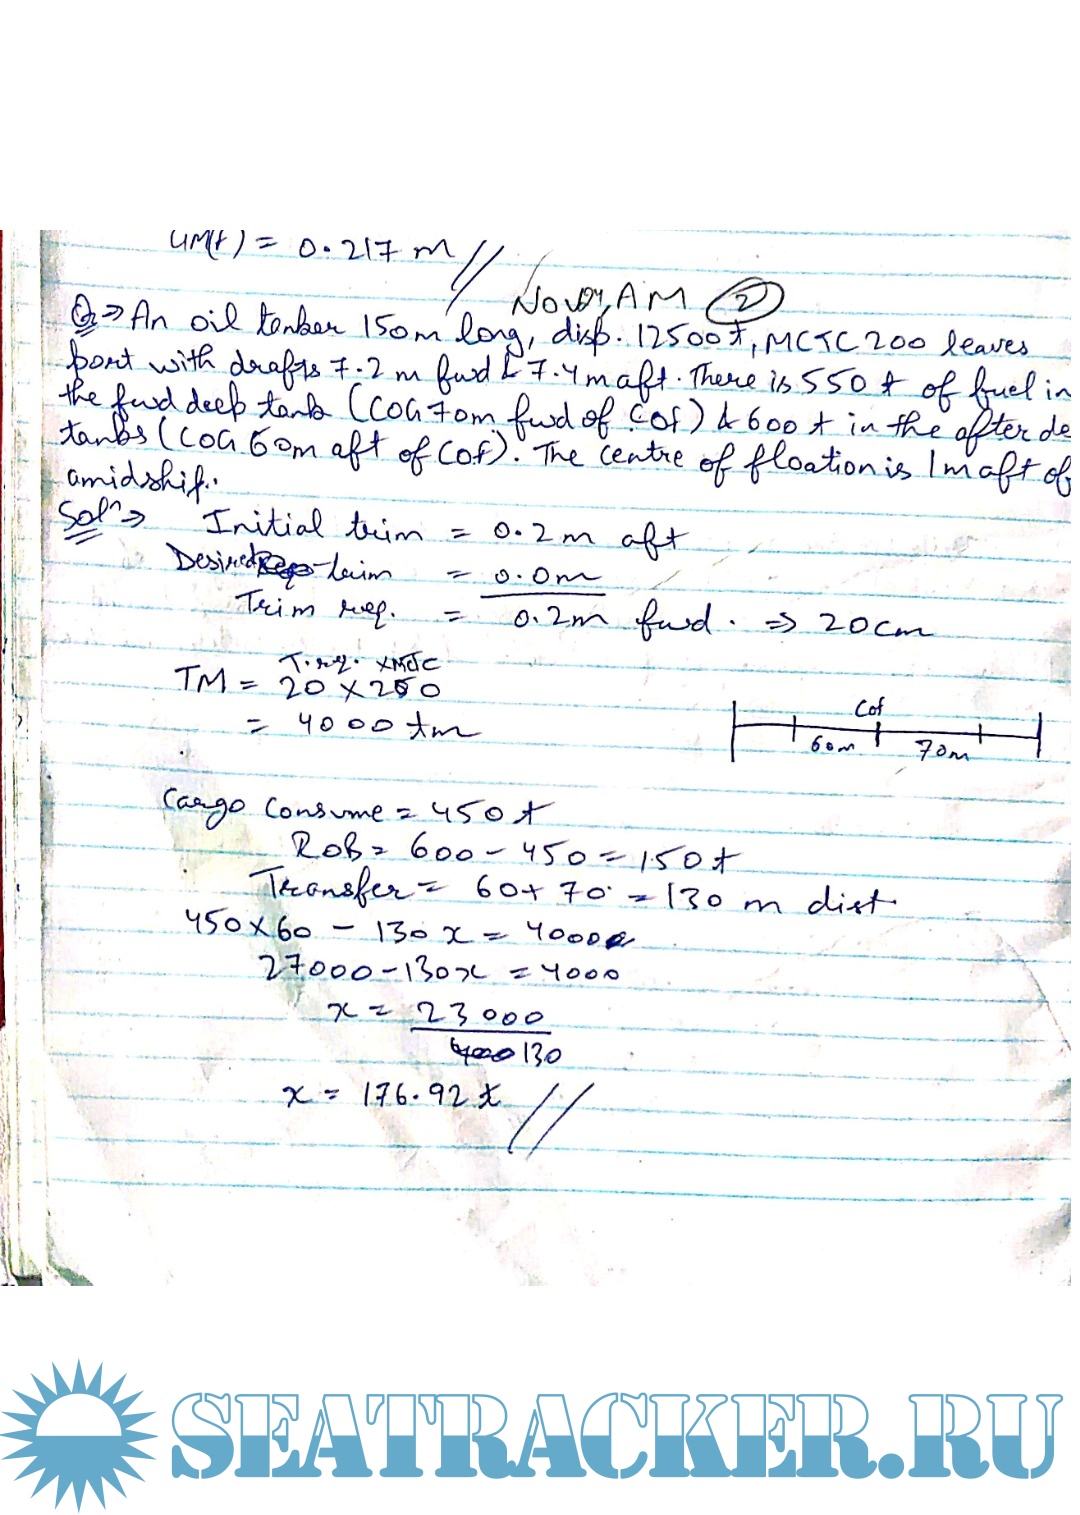 GM(f) = 0.217 m //
Nov 04, AM (2)
Q ⇒ An oil tanker 150m long, disp. 12500 t, MCTC 200 leaves
port with drafts 7.2 m fwd & 7.4 m aft. There is 550 t of fuel in
the fwd deep tank (COG 70m fwd of COF) & 600 t in the after de
tanks (COG 60m aft of COF). The centre of floation is 1m aft of
amidship.
Solⁿ ⇒ Initial trim = 0.2 m aft
Desired trim = 0.0m
Trim req. = 0.2m fwd. ⇒ 20cm
T.req. x MCTC
TM = 20 x 200
= 4000 tm
Cof
60m 70m
Cargo Consume = 450 t
ROB = 600 - 450 = 150 t
Transfer = 60 + 70 = 130 m dist
450 x 60 - 130 x = 4000
27000 - 130x = 4000
x = 23000
130
x = 176.92 t //
SEATRACKER.RU